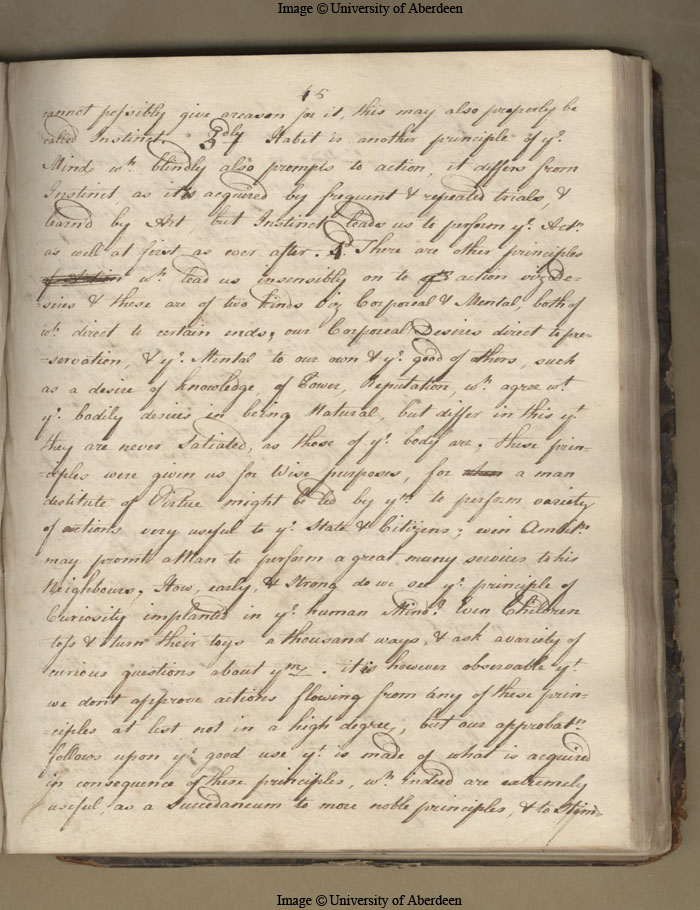 Image © University of Aberdeen
cannot possibly give a reason for it, this may also properly be
called Instinct. 3dly Habit is another principle of ye.
Mind wh. blindly also prompts to action, it differs from
Instinct as it is acquired by frequent & repeated trials, &
learn'd by Art but Instinct leads us to perform ye. Actn.
as well at first as ever after. 4. There are other principles
wh. lead us insensibly on to action viz. de-
-sires & these are of two kinds viz Corporeal & Mental, both of
wh. direct to certain ends, our Corporeal Desires direct to pre-
=servation, & ye. Mental to our own & ye. good of others, such
as a desire of knowledge, of Power, Reputation, wh. agree wt.
ye. bodily desires in being Natural, but differ in this yt
they are never Satiated, as those of ye. body are, these prin-
=ciples were given us for Wise purposes, for a man
destitute of Virtue might be led by ym. to perform variety
of actions very useful to ye. State & Citizens; even Ambitn.
may promt a Man to perform a great many services to his
Neighbours, How, early, & Strong do we see ye. principle of
Curiosity implanted in ye. human Mind? Even Children
toss & turn their toys a thousand ways, & ask a variety of
curious questions about ym. it is however observable yt
we dont approve actions flowing from any of these prin-
=ciples at lest not in a high degree, but our approbatn.
follows upon ye. good use yt. is made of what is acquired
in consequence of these principles, wh. indeed are extremely
useful, as a Succedaneum to more noble principles, & to Stim-
Image © University of Aberdeen